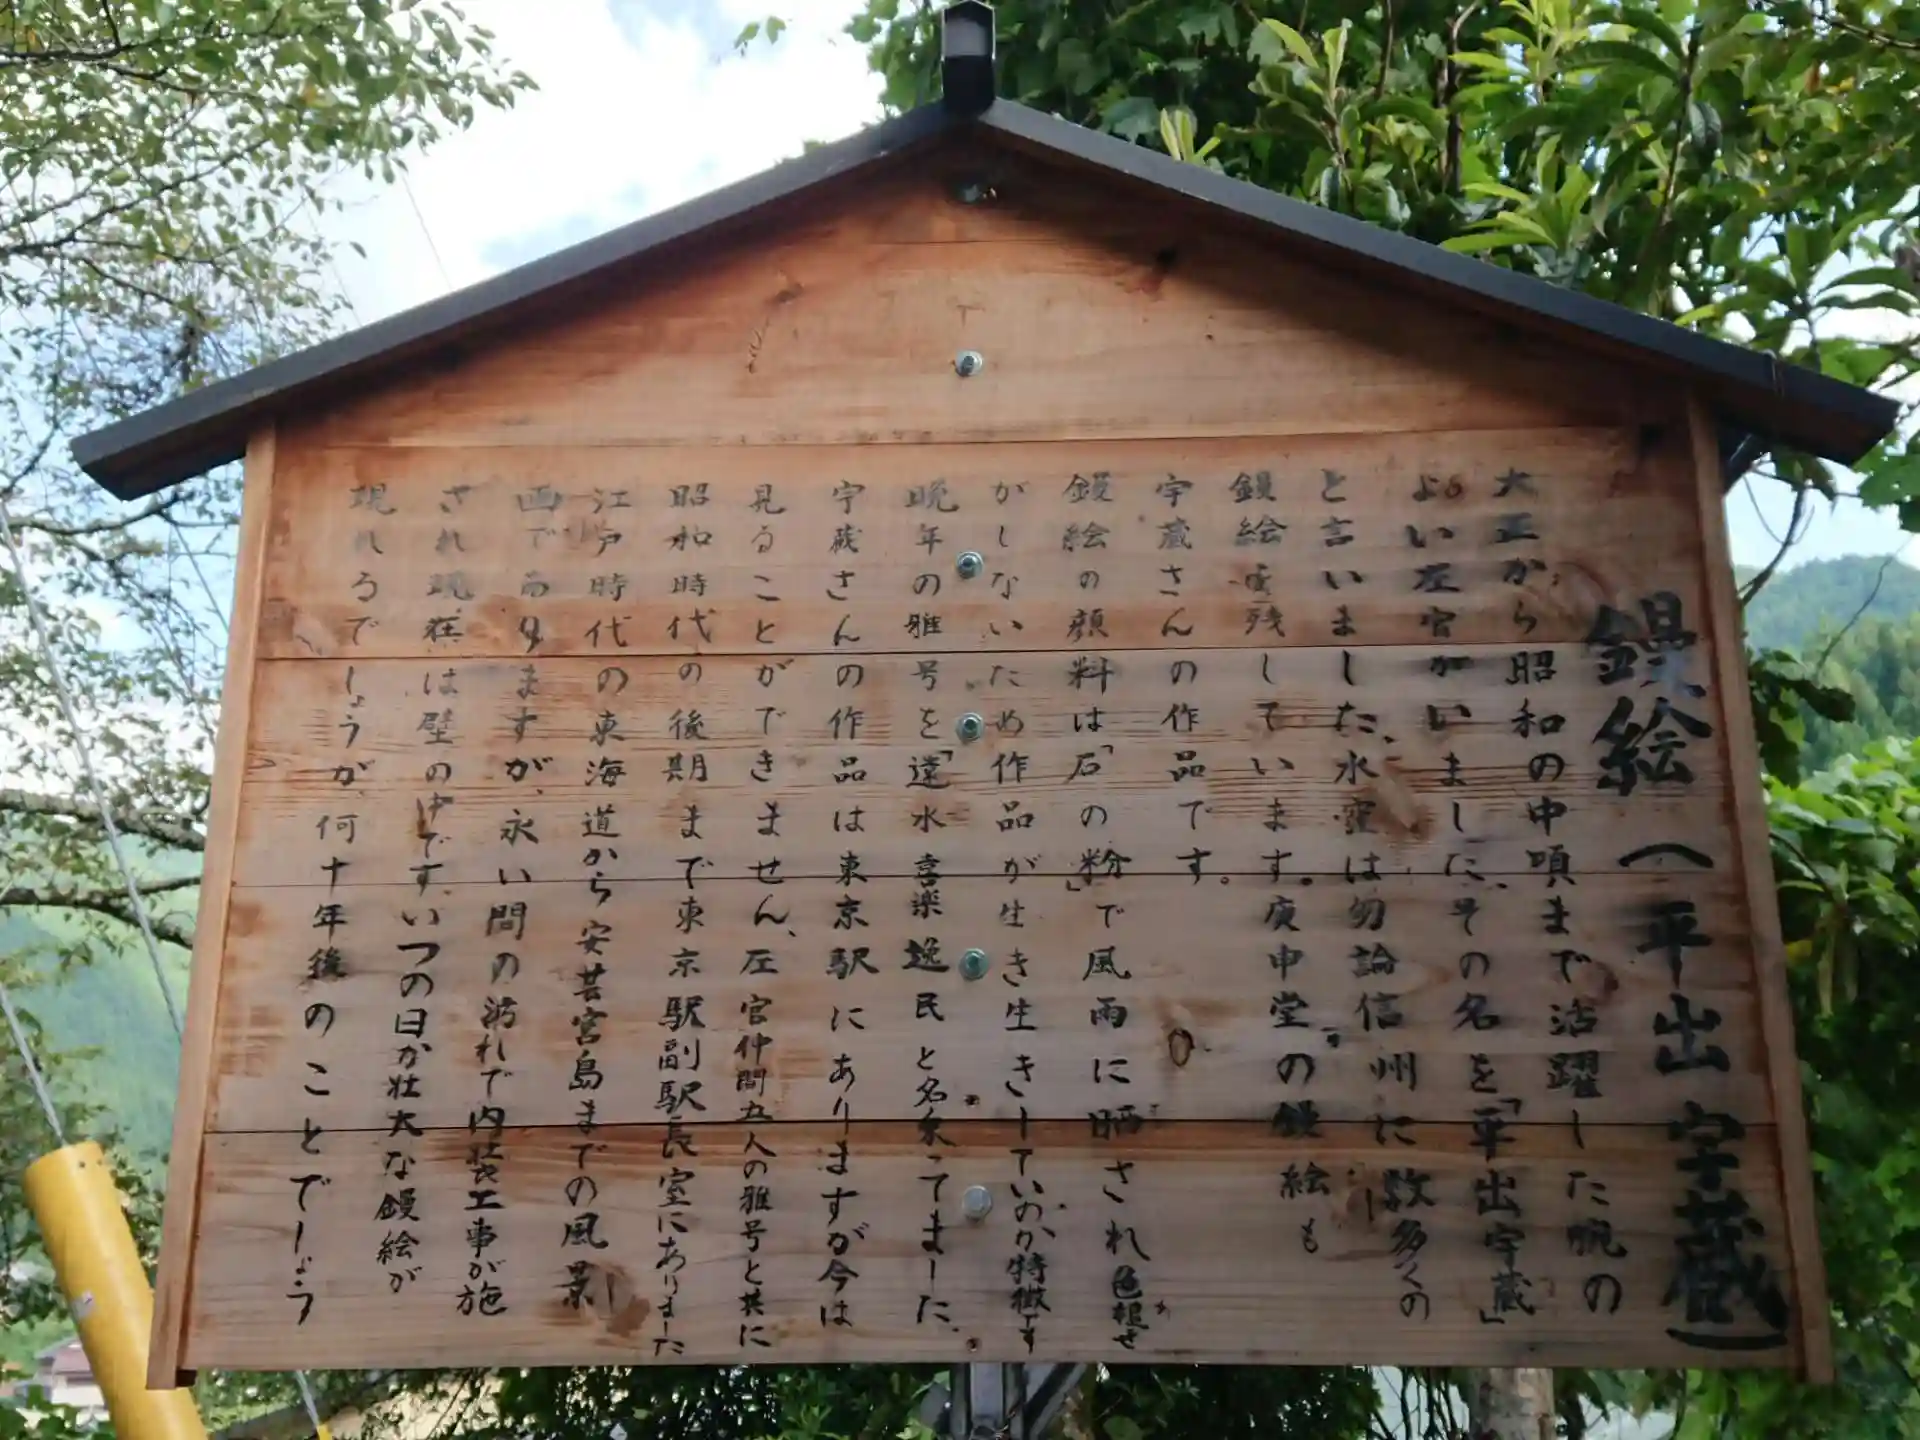 鏝絵（平出宇蔵）
大正から昭和の中頃まで活躍した腕の
よい左官がいました、その名を「平出宇蔵」
と言いました、水窪は勿論信州に数多くの
鏝絵を残しています。庚申堂の鏝絵も
宇蔵さんの作品です。
鏝絵の顔料は「石の粉」で風雨に晒され色褪せ
がしないため作品が生き生きしているのが特徴です
晩年の雅号を「遠水喜楽逸民と名乗ってました、
宇蔵さんの作品は東京駅にありますが今は
見ることができません、左官仲間五人の雅号と共に
昭和時代の後期まで東京駅副駅長室にありました
江戸時代の東海道から安芸宮島までの風景
画でありますが、永い間の汚れで内装工事が施
され現在は壁の中です、いつの日か壮大な鏝絵が
現れるでしょうが、何十年後のことでしょう